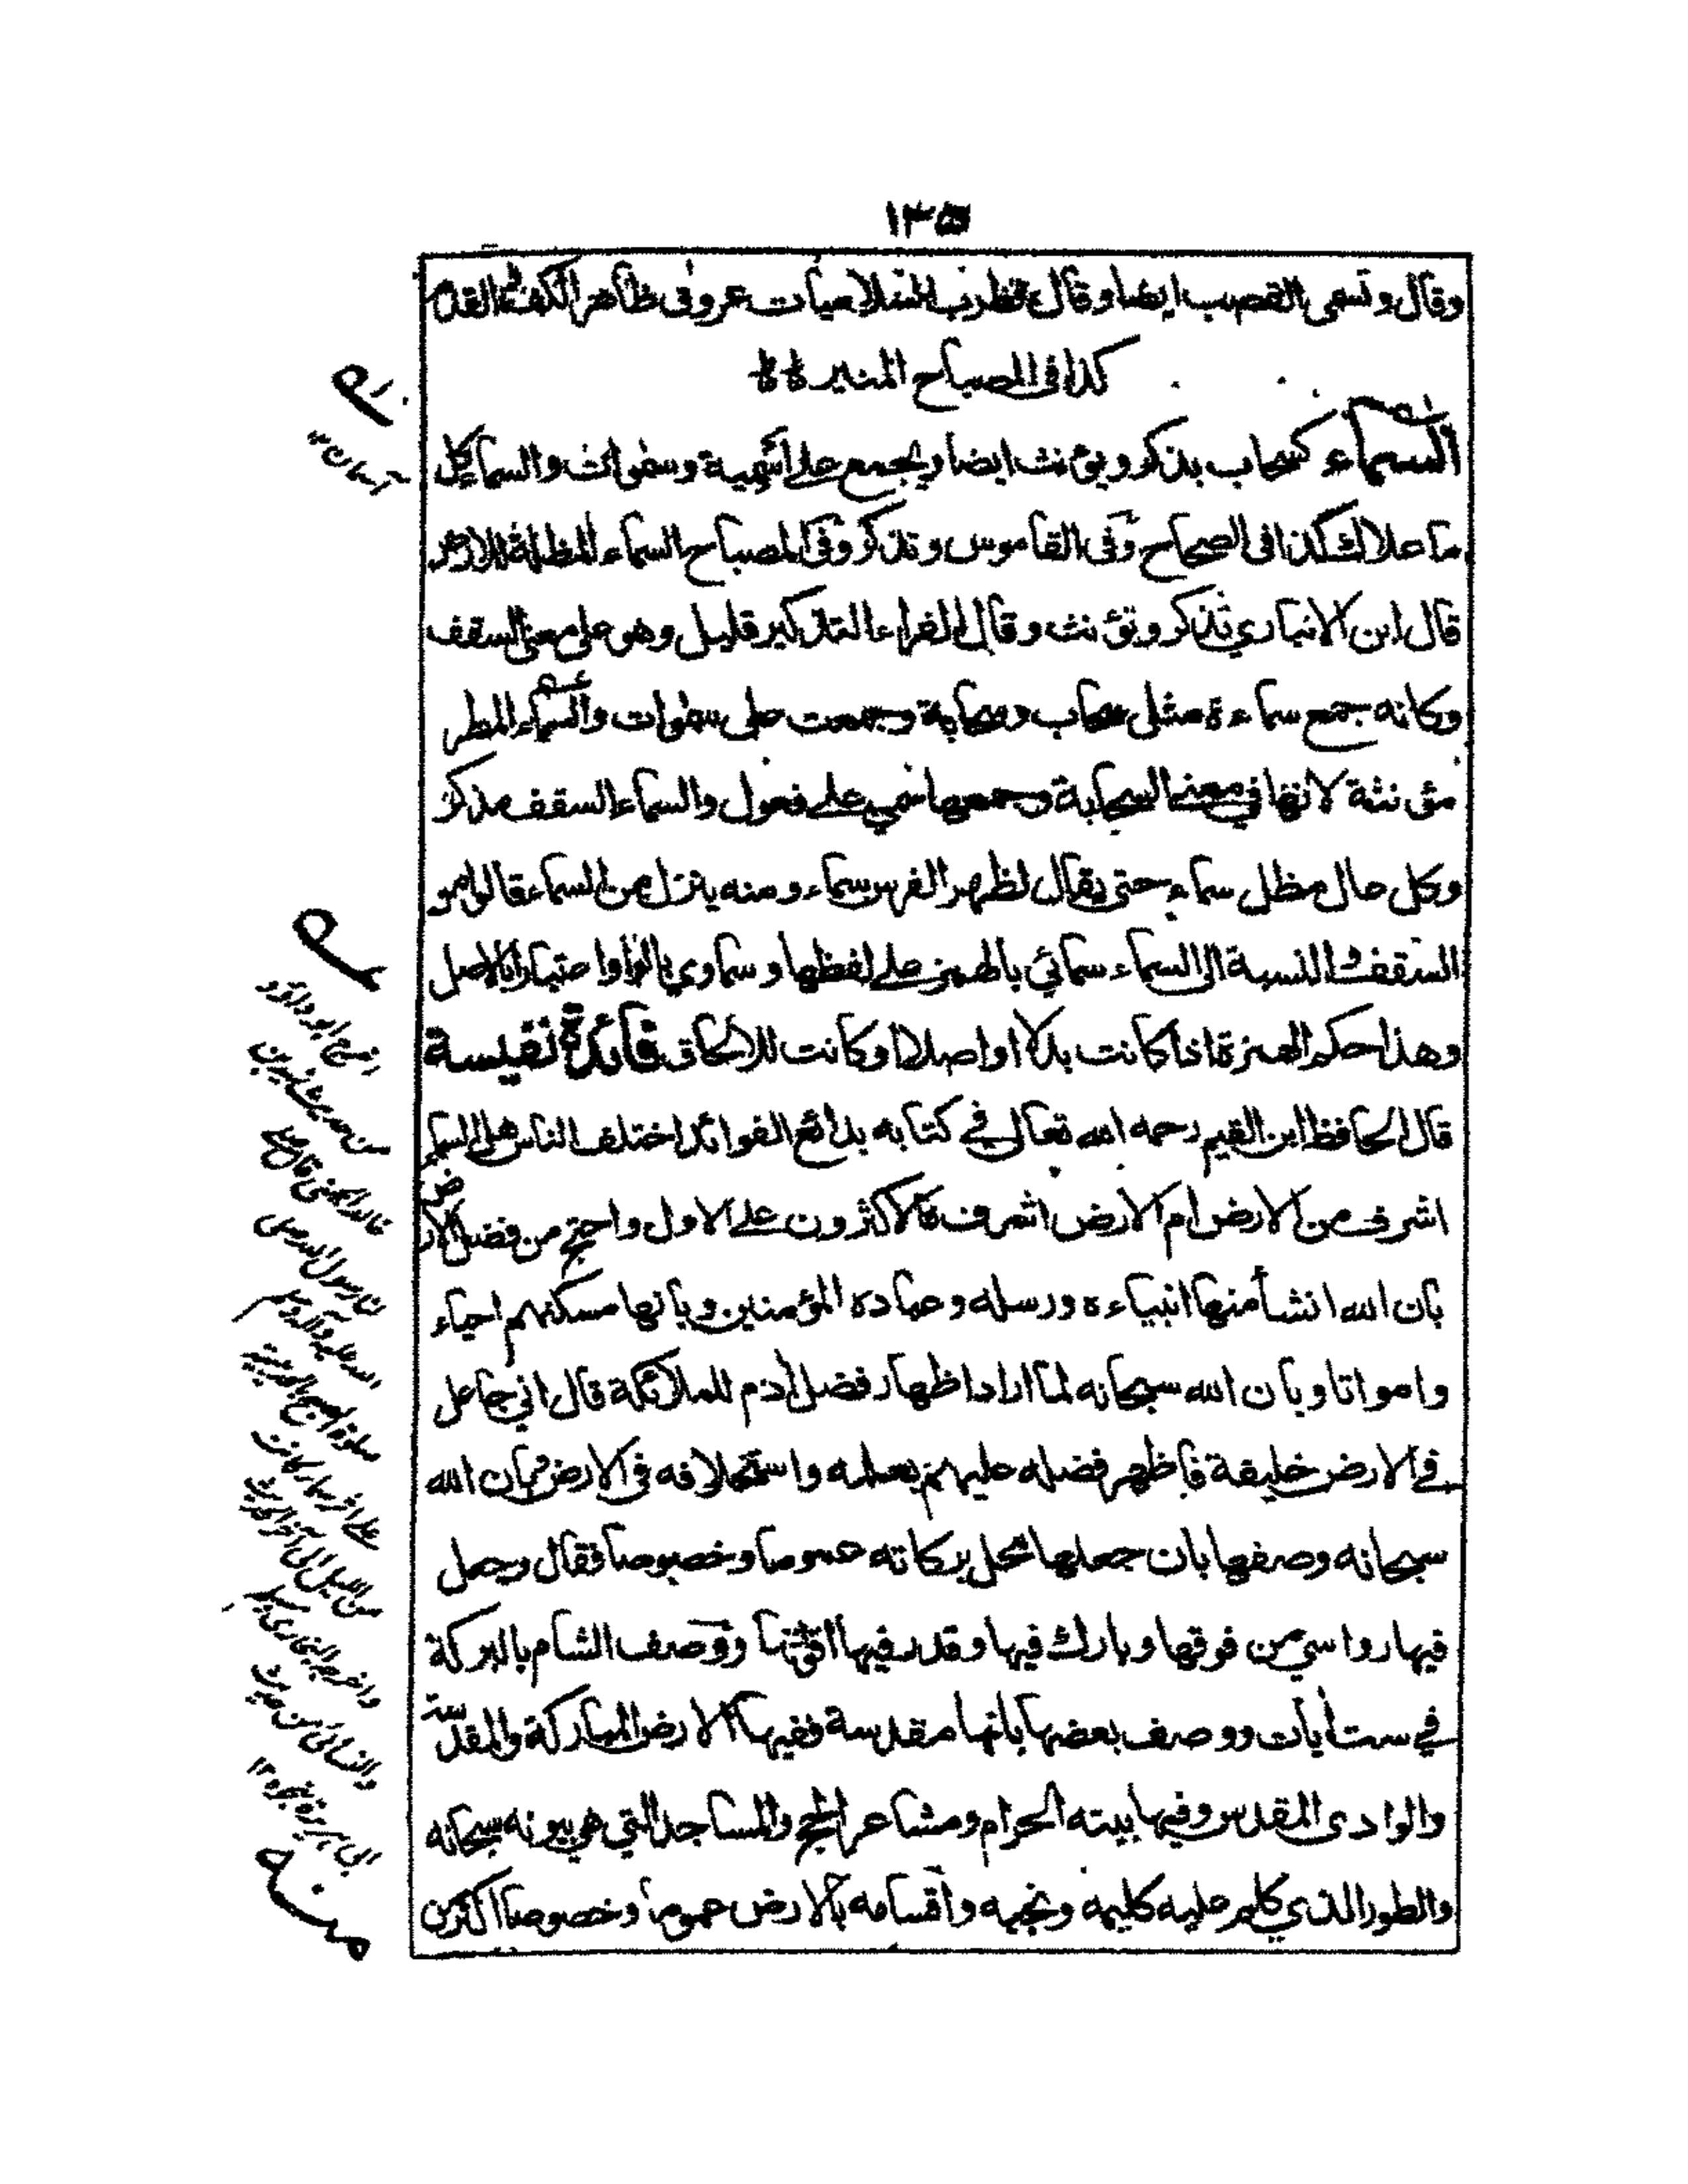 ١٣٥
وقال وتسمى القصب ايضا وقال قطرب السلاميات عروق ظاهر الكف والقدم
كذا في المصباح المنير
السماء كسحاب يذكر ويؤنث ايضا ويجمع على اسمية وسموات والسماء كل
ما علاك كذا في الصحاح وفي القاموس وتذكر وفي المصباح السماء المظلة للارض
قال ابن الانباري تذكر وتؤنث وقال الفراء التذكير قليل وهو على معنى السقف
وكانه جمع سماءة مثل سحاب وسحابة وجمعت على سموات والسماء المطر
مؤنثة لانها في معنى السحابة وجمعها سمي على فعول والسماء السقف مذكر
وكل عال مظل سماء حتى يقال لظهر الفرس سماء ومنه ينزل من السماء قالوا من
السقف والنسبة الى السماء سمائي بالهمز على لفظها وسماوي بالواو اعتبارا بالاصل
وهذا حكم الهمزة اذا كانت بدلا او اصلا او كانت للالحاق فائدة نفيسة
قال الحافظ ابن القيم رحمه الله تعالى في كتابه بدائع الفوائد اختلف الناس هل السماء
اشرف من الارض ام الارض اشرف فالاكثرون على الاول واحتج من فضل الارض
بان الله انشأ منها انبياءه ورسله وعباده المؤمنين وبانها مسكنهم احياء
وامواتا وبان الله سبحانه لما اراد اظهار فضل أدم للملائكة قال اني جاعل
في الارض خليقة فاظهر فضله عليهم بعلمه واستخلافه في الارض وبان الله
سبحانه وصفها بان جعلها محل بركاته عموما وخصوصا فقال وجعل
فيها رواسي من فوقها وبارك فيها وقدر فيها اقواتها ووصف الشام بالبركة
في ست أيات ووصف بعضها بانها مقدسة ففيها الارض المباركة والمقدسة
والوادى المقدس وفيها بيته الحرام ومشاعر الحج والمساجد التي هي بيوته سبحانه
والطور الذي كلم عليه كليمه ونجيه واقسامه بالارض عموما وخصوصا اكثر من
آسمان ١٢
اخرج ابو داؤد
من حديث زيد بن
خالد الجهني قال صلى
لنا رسول الله صلى
الله عليه وآله وسلم
صلوة الصبح بالحديبية
على اثر سماء كانت
من الليل الى آخر الحديث
واخرجه البخاري ومسلم
والنسائي من حديث
ابي هريرة نحوه ١٢
منه